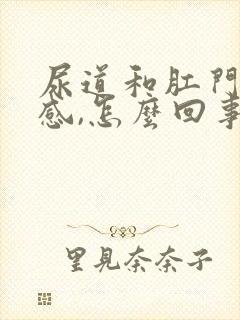 尿道和肛門
感,怎麼回事
里見奈奈子